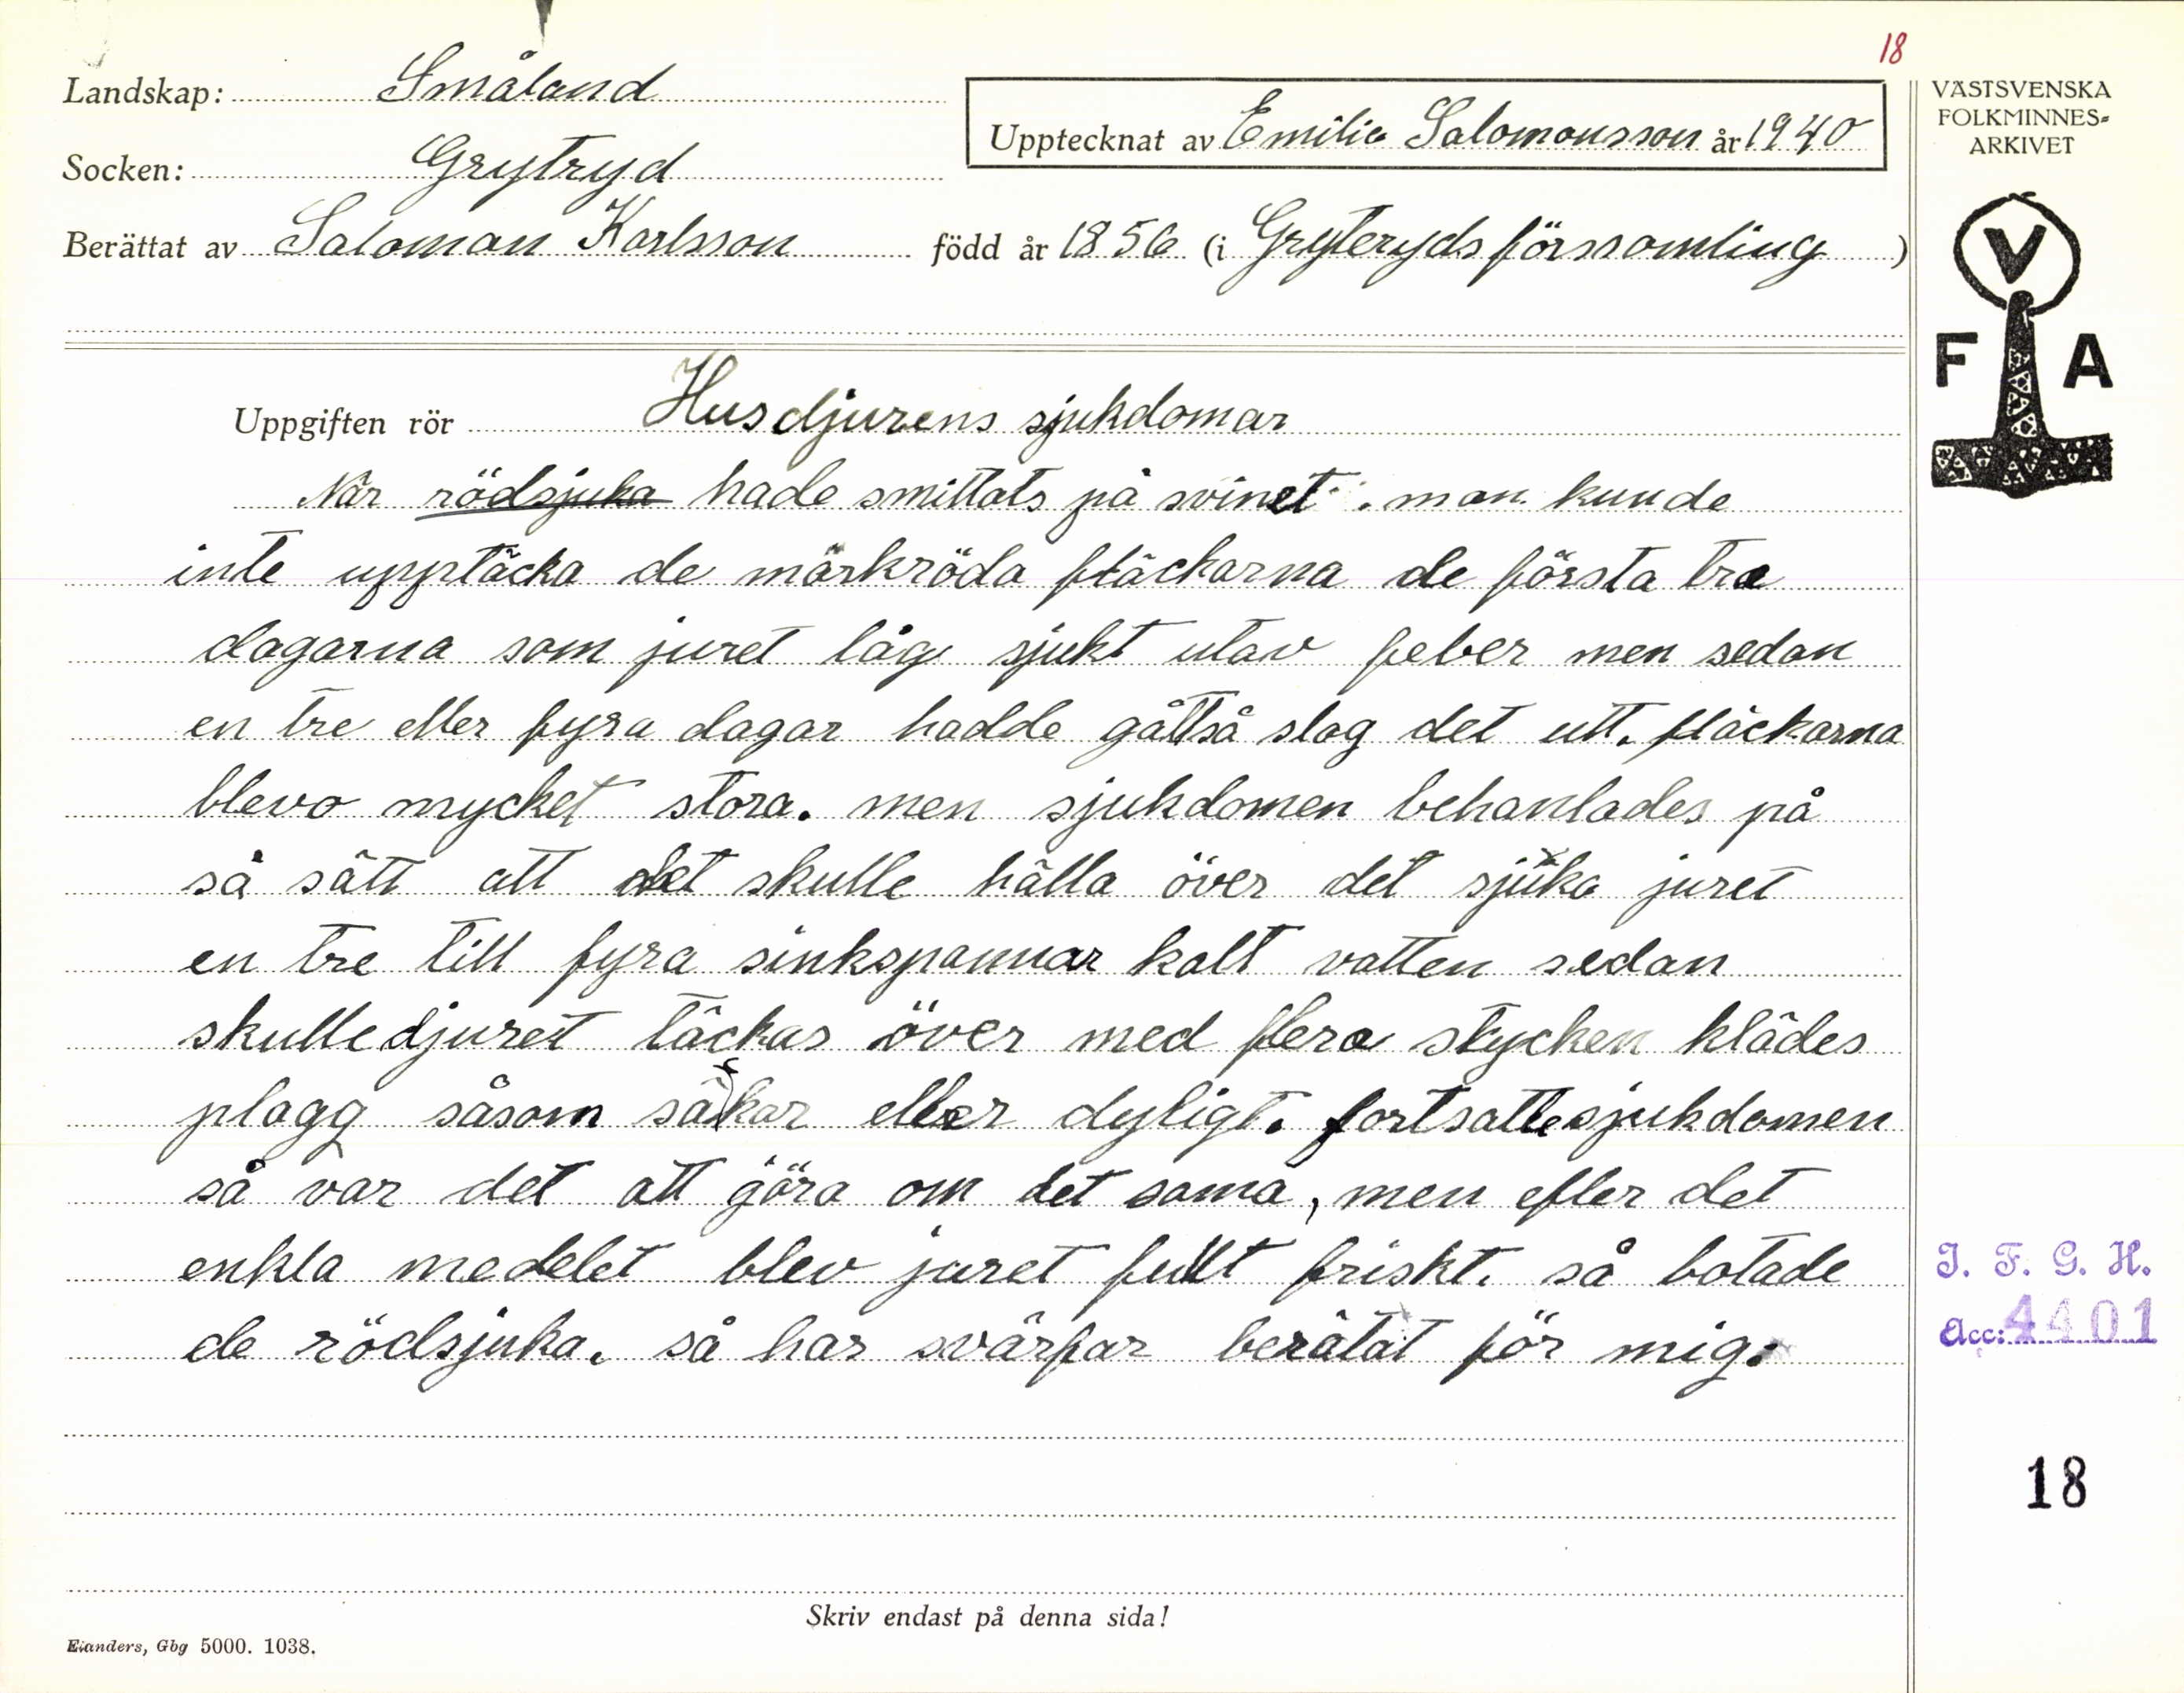 18
Landskap: Småland
Upptecknat av Emilia Salomonsson år 1940
Socken: Grytryd
Berättat av Saloman Karlsson född år 1856 (i Gryteryds förssomling)
VÄSTSVENSKA
FOLKMINNES-
ARKIVET
V
F A
Uppgiften rör Husdjurens sjukdomar
När rödsjuka hade smittats på svinet. man kunde
inte upptäcka de märkröda fläckarna de första tre
dagarna som juret låg sjukt utav feber men sedan
en tre eller fyra dagar hadde gått så slog det utt. fläckarna
blevo mycket stora. men sjukdomen behanlades på
så sätt att det skulle hälla över det sjuka juret
en tre till fyra sinkspannar kalt vatten sedan
skulle djuret täckas över med flera stycken klädes
plagg såsom säckar eller dyligt. fortsatte sjukdomen
så var det att göra om det sama, men efter det
enkla medelet blev juret fullt friskt. så botade
de rödsjuka. så har svärfar berätat för mig.
I. F. G. H.
Acc: 4401
18
Skriv endast på denna sida!
Elanders, Gbg 5000. 1038.